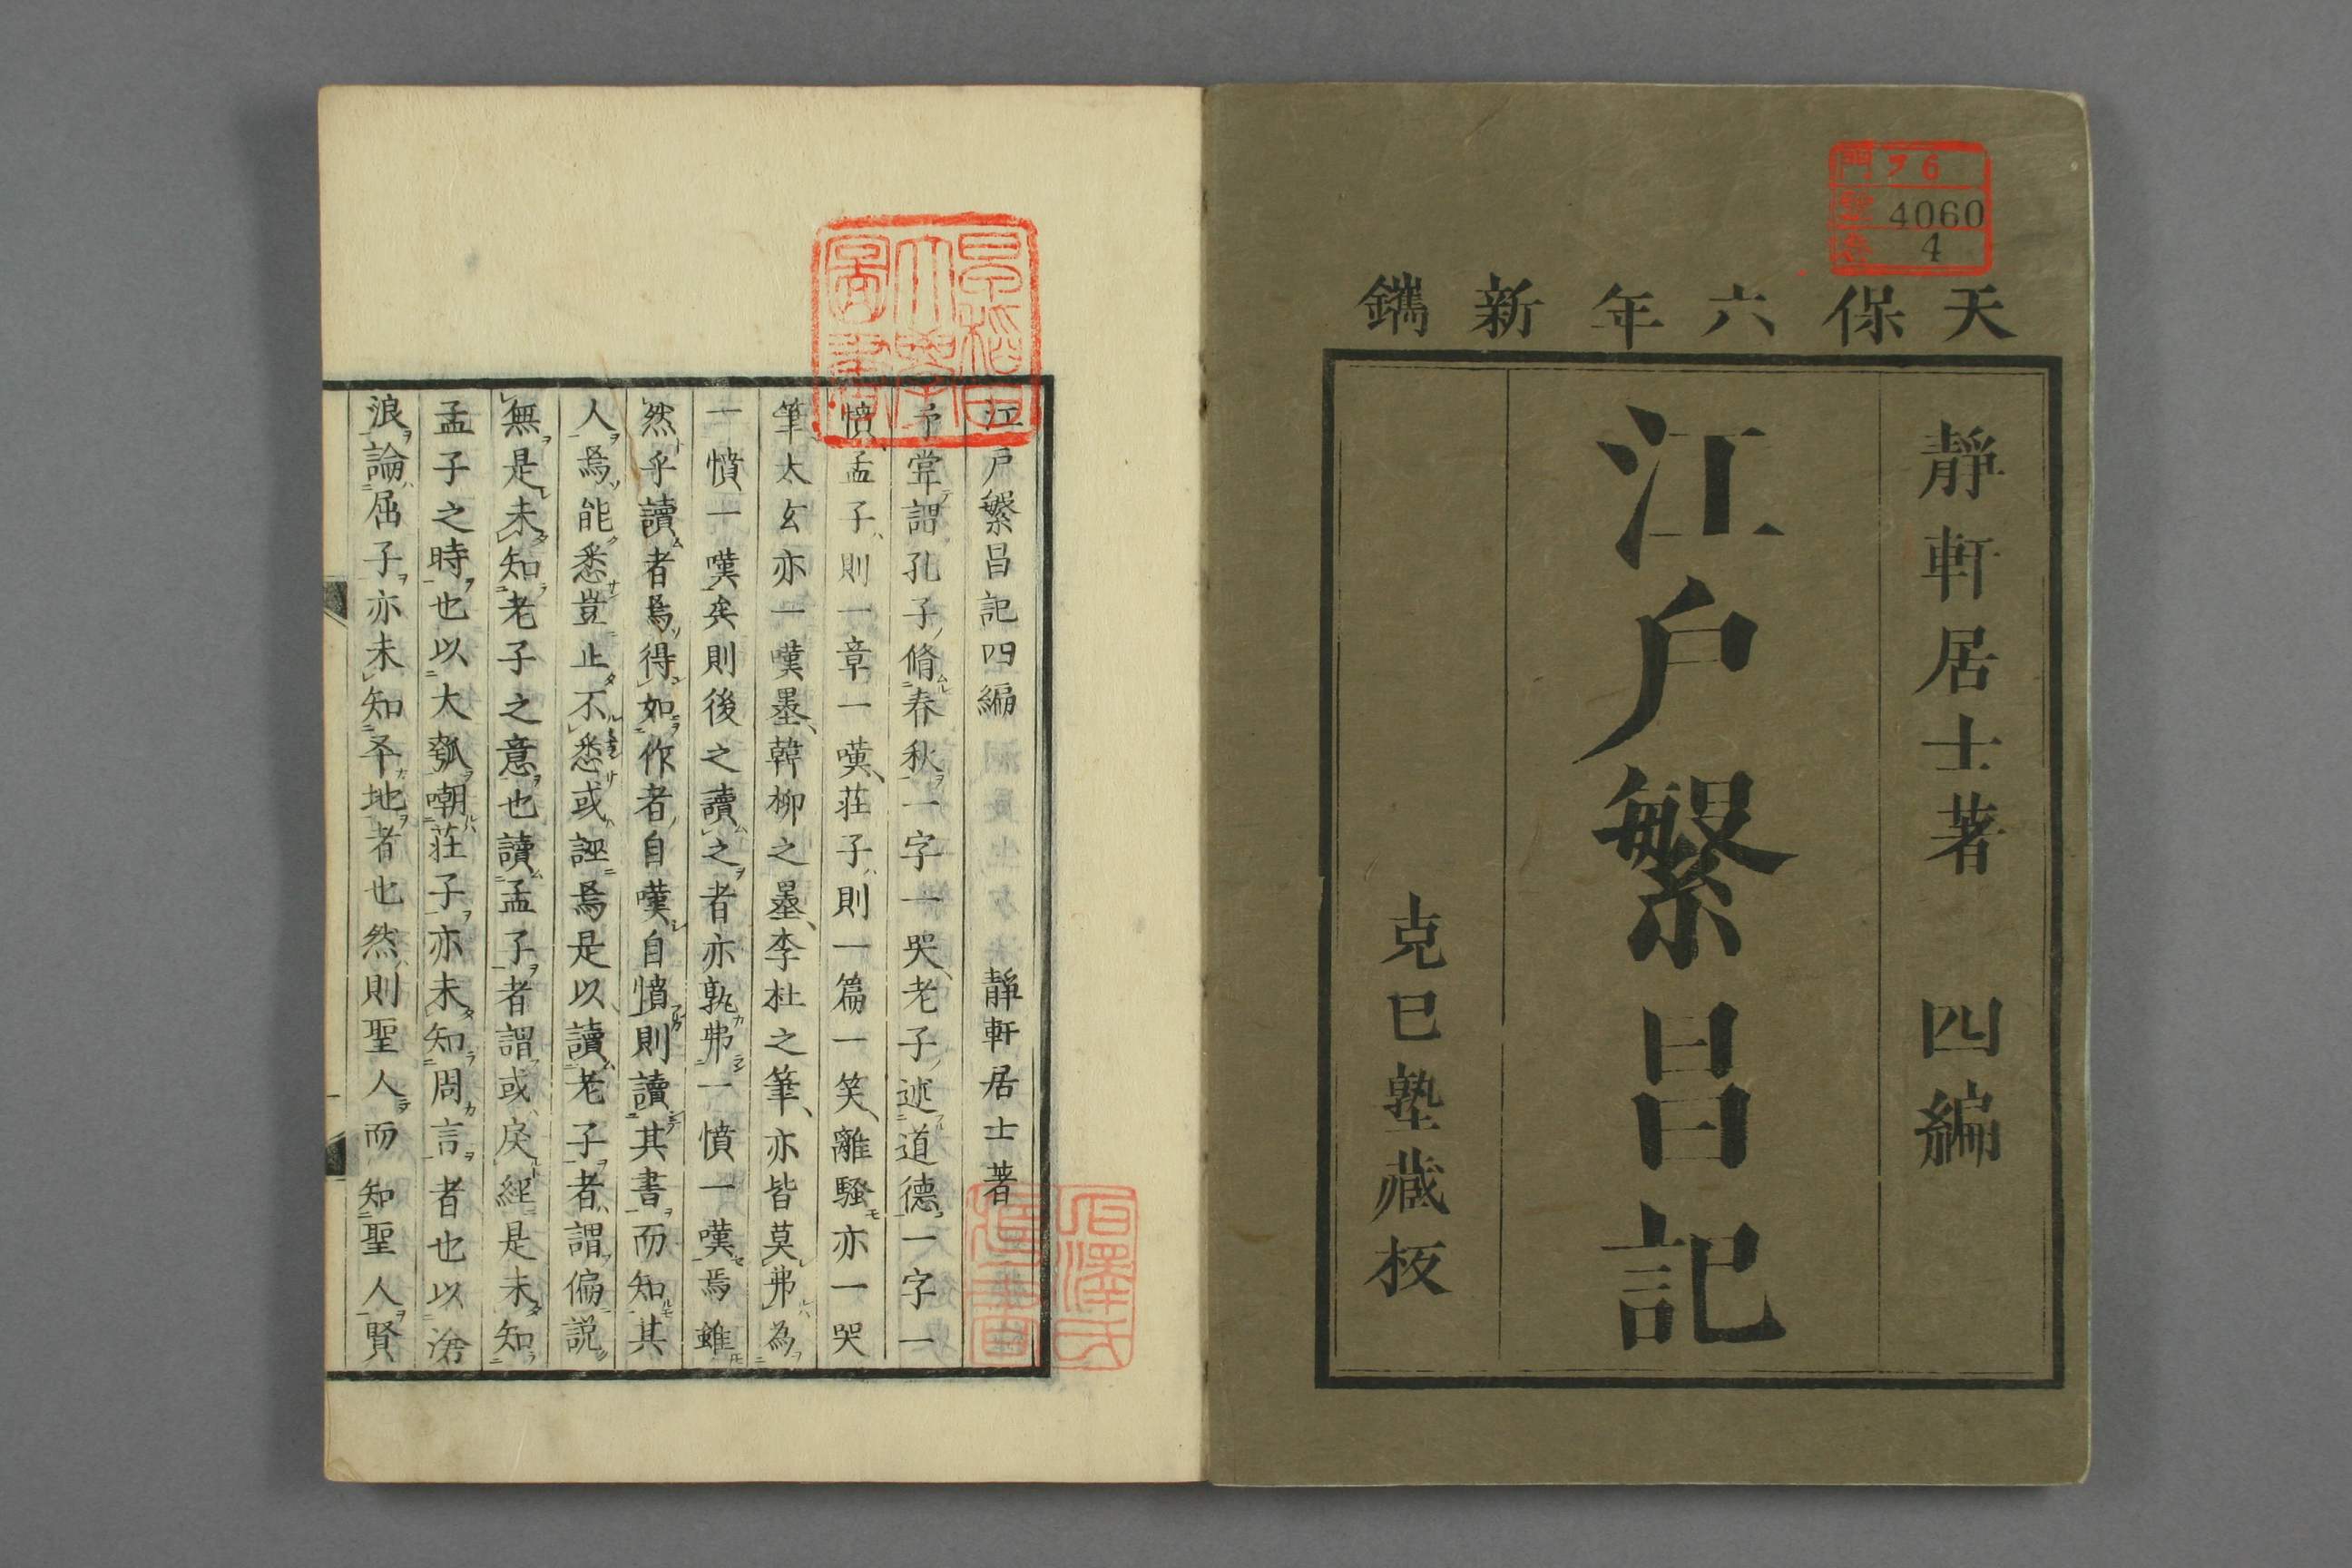 天保六年新鐫
靜軒居士著 四編
江戸繁昌記
克己塾藏板
門 ヲ6
號 4060
卷 4
早稻田
大學
圖書
江戸繁昌記四編 靜軒居士著
予嘗謂孔子脩春秋一字一哭老子述道德一字一
憤孟子則一章一嘆莊子則一篇一笑離騷亦一哭
筆太玄亦一嘆墨韓柳之墨李杜之筆亦皆莫弗為
一憤一嘆矣則後之讀之者亦孰弗一憤一嘆焉雖
然乎讀者焉得如作者自嘆自憤則讀其書而知其
人焉能悉豈止不悉或誣焉是以讀老子者謂偏説
無是未知老子之意也讀孟子者謂或戾經是未知
孟子之時也以大瓠嘲莊子亦未知周言者也以滄
浪論屈子亦未知平地者也然則聖人而知聖人賢